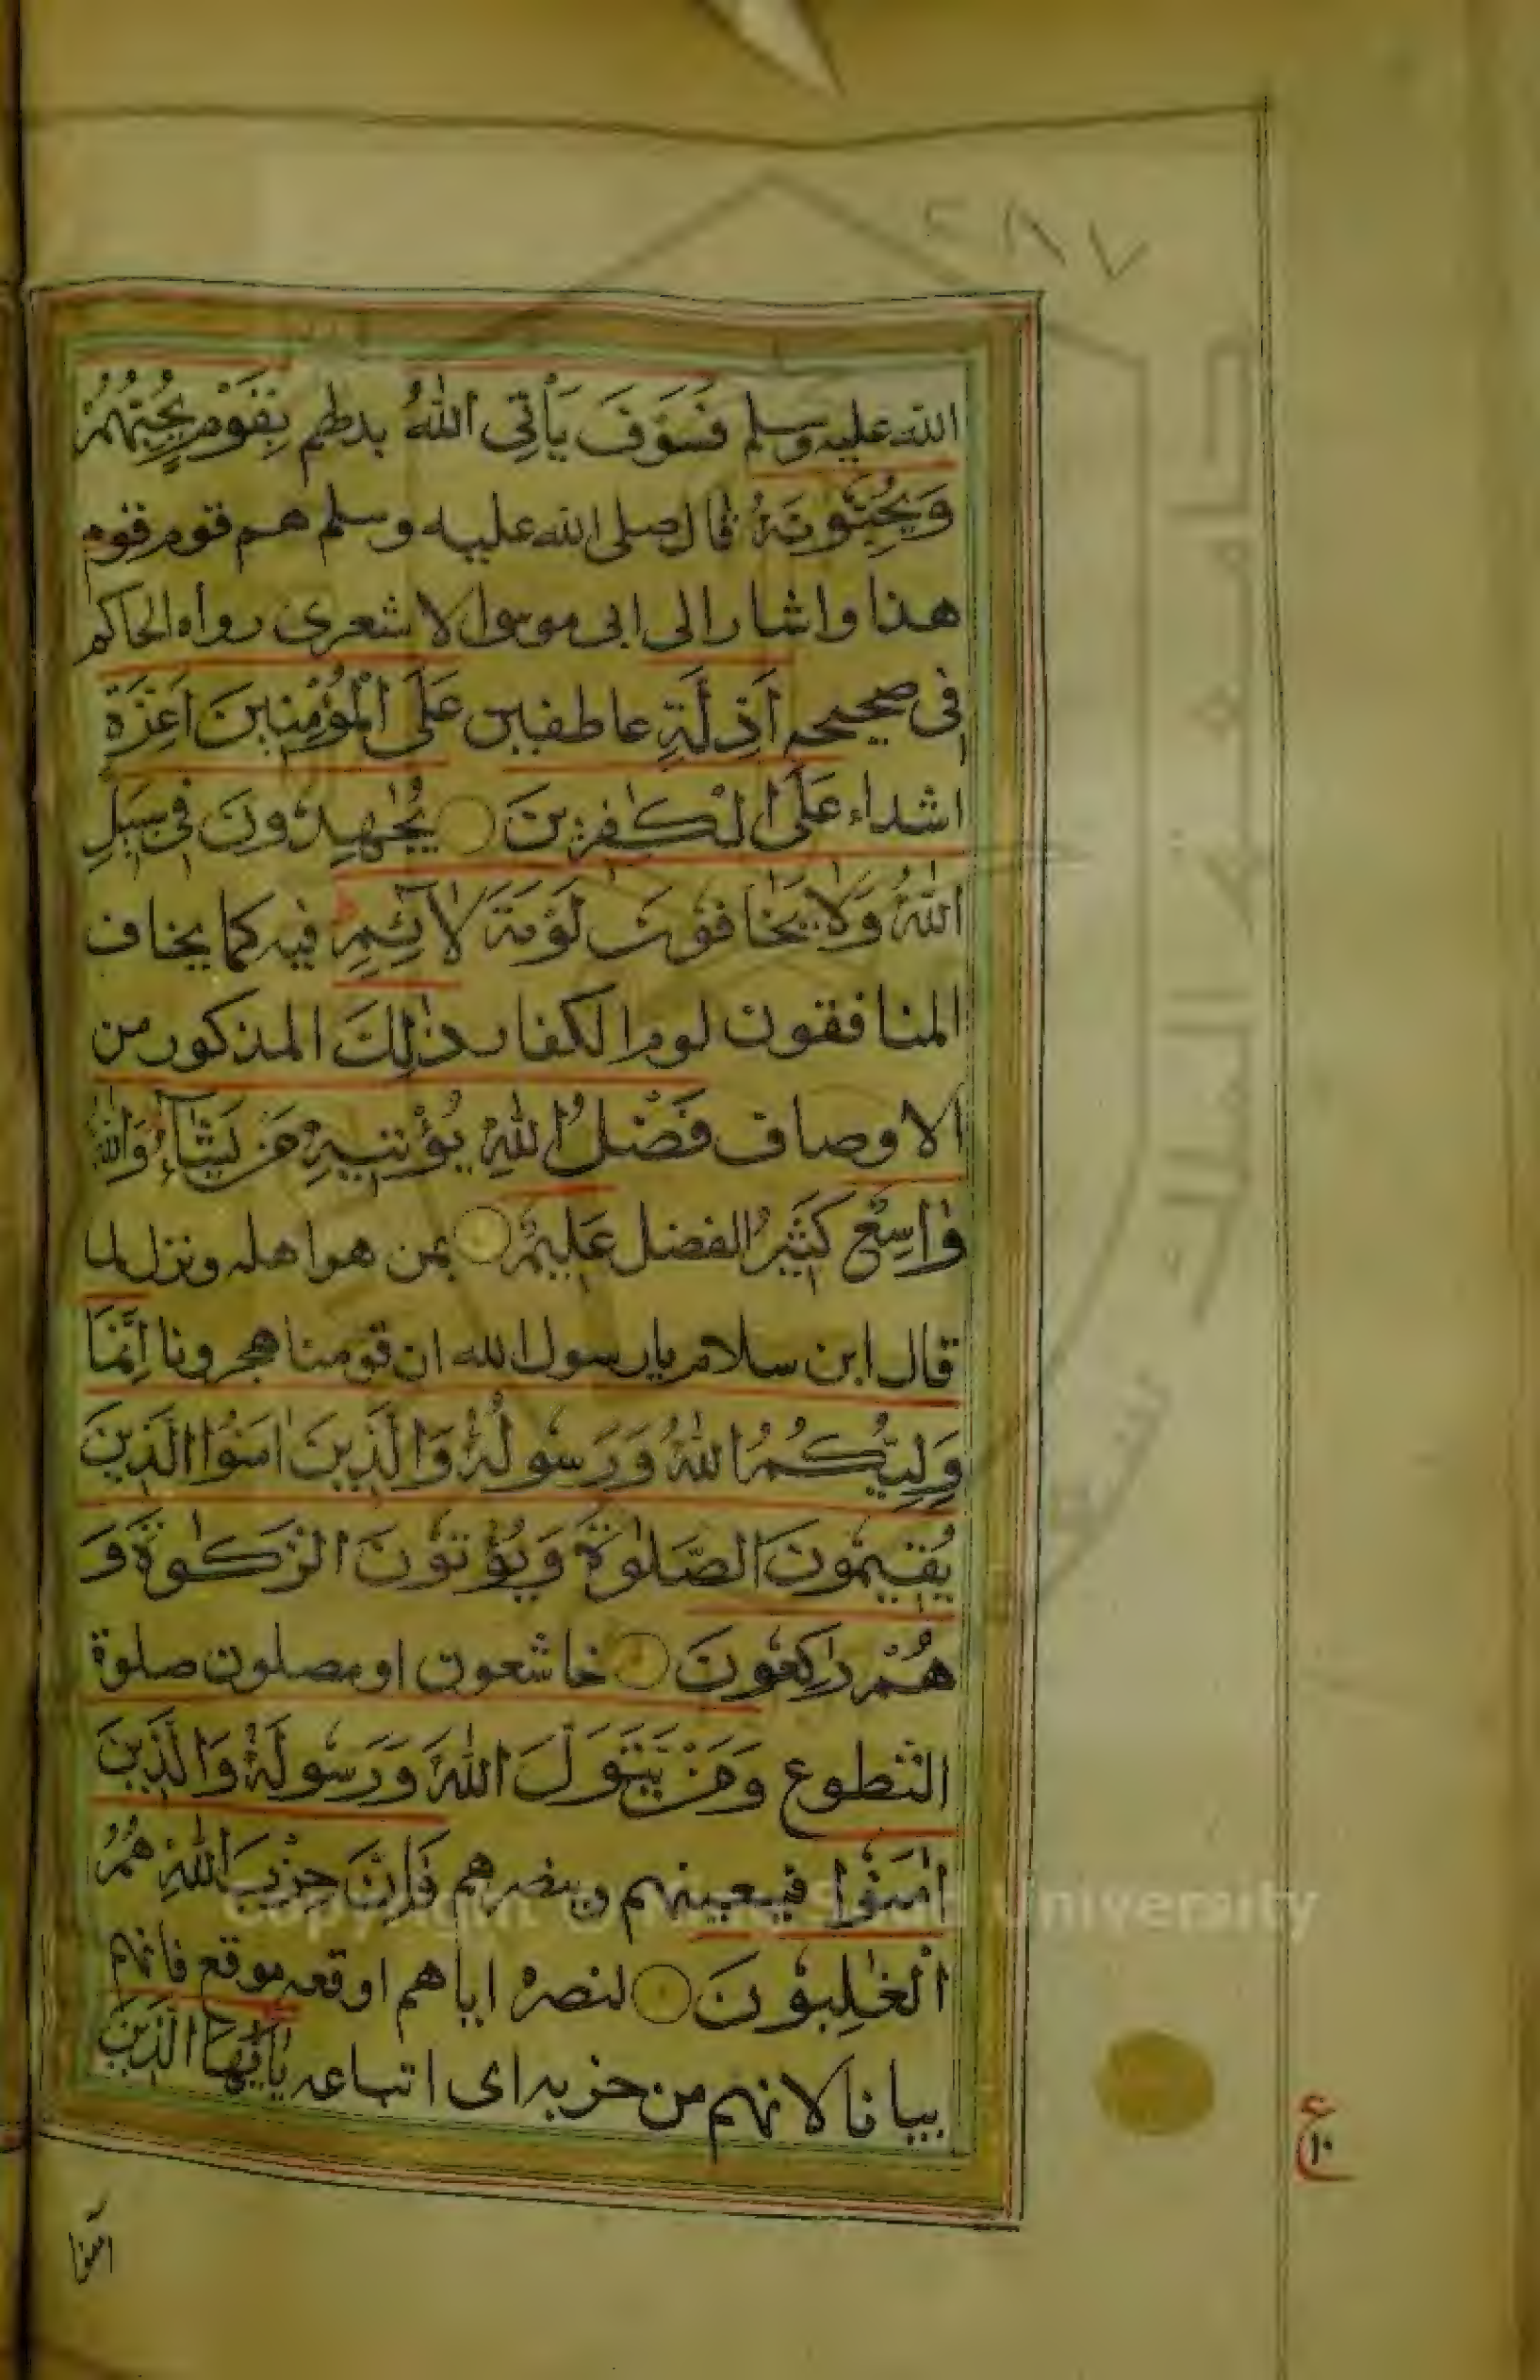 ٢٨٧
الله عليه وسلم فَسَوْفَ يَأْتِى اللّٰهُ بدلهم بِقَوْمٍ يُحِبُّهُمْ
وَيُحِبُّونَهُ قال صلى الله عليه وسلم هم قوم قوم
هذا واشار الى ابى موسى الاشعرى رواه الحاكم
فى صحيحه اَذِلَّةٍ عاطفين عَلَى الْمُؤْمِنِينَ اَعِزَّةٍ
اشداء عَلَى الْكٰفِرِينَ يُجٰهِدُونَ فِى سَبِيلِ
اللّٰهِ وَلَا يَخَافُونَ لَوْمَةَ لَآئِمٍ فيه كما يخاف
المنافقون لوم الكفار ذٰلِكَ المذكور من
الاوصاف فَضْلُ اللّٰهِ يُؤْتِيهِ مَنْ يَشَآءُ وَاللّٰهُ
وَاسِعٌ كَثِيرُ الفضل عَلِيمٌ بمن هو اهله ونزل لما
قال ابن سلام يا رسول الله ان قومنا هجرونا اِنَّمَا
وَلِيُّكُمُ اللّٰهُ وَرَسُولُهُ وَالَّذِينَ اٰمَنُوا الَّذِينَ
يُقِيمُونَ الصَّلٰوةَ وَيُؤْتُونَ الزَّكٰوةَ وَ
هُمْ رَاكِعُونَ خاشعون او مصلون صلوة
التطوع وَمَنْ يَتَوَلَّ اللّٰهَ وَرَسُولَهُ وَالَّذِينَ
اٰمَنُوا فيعينهم وينصرهم فَاِنَّ حِزْبَ اللّٰهِ هُمُ
الْغٰلِبُونَ لنصره اياهم اوقعه موقع فانهم
بيانا لانهم من حزبه اى اتباعه يٰٓاَيُّهَا الَّذِينَ
اٰمنوا
ع
١٠
Copyright © King Saud University
جامعة الملك سعود